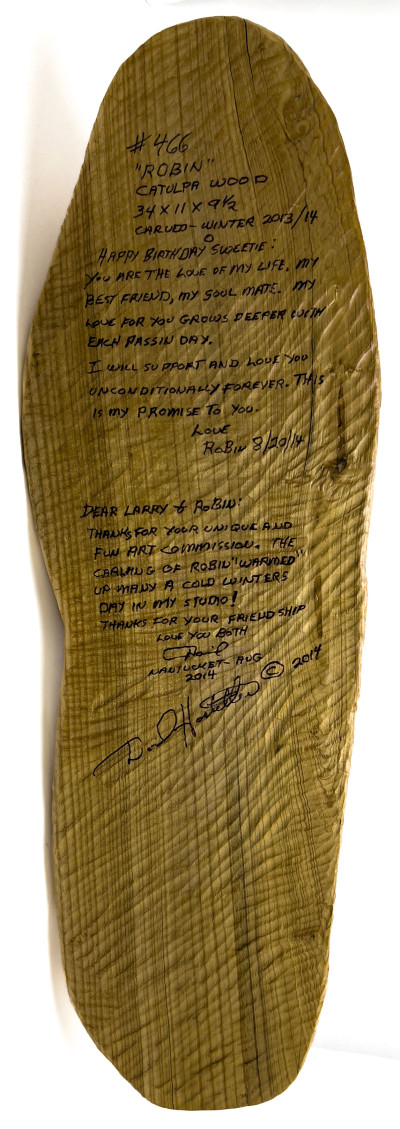 #466
"ROBIN"
CATULPA WOOD
34 X 11 X 9 1/2
CARVED - WINTER 2013/14
HAPPY BIRTHDAY SWEETIE:
YOU ARE THE LOVE OF MY LIFE, MY
BEST FRIEND, MY SOUL MATE. MY
LOVE FOR YOU GROWS DEEPER WITH
EACH PASSIN DAY.
I WILL SUPPORT AND LOVE YOU
UNCONDITIONALLY FOREVER. THIS
IS MY PROMISE TO YOU.
LOVE
ROBIN 8/20/14
DEAR LARRY & ROBIN:
THANKS FOR YOUR UNIQUE AND
FUN ART COMMISSION. THE
CARVING OF ROBIN "WARMED"
UP MANY A COLD WINTERS
DAY IN MY STUDIO!
THANKS FOR YOUR FRIENDSHIP
LOVE YOU BOTH
David
NANTUCKET - AUG
2014
David Hostetler © 2014